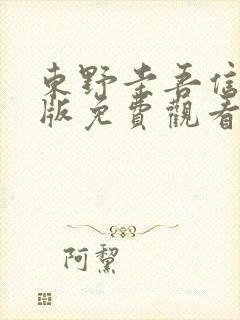 東野圭吾信
版免費觀看
阿黧